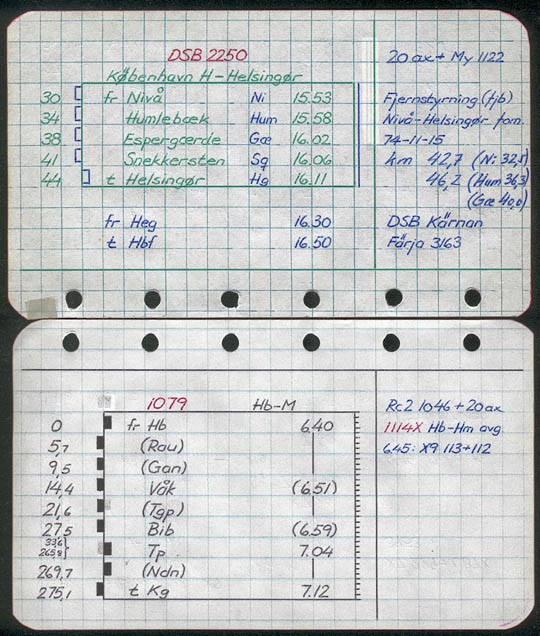 DSB 2250
20 ax + My 1122
København H - Helsingør
30 fr Nivå Ni 15.53
Fjernstyrning (fjb)
34 Humlebæk Hum 15.58
Nivå-Helsingør fom.
38 Espergærde Gæ 16.02
74-11-15
41 Snekkersten Sq 16.06
km 42,7 (Ni 32,8)
44 t Helsingør Hg 16.11
46,2 (Hum 36,3)
(Gæ 40,0)
fr Heg 16.30
DSB Kärnan
t Hbf 16.50
Färja 3163
i079 Hb-M
Rc2 1046 + 20 ax
0 fr Hb 6.40
1114X Hb-Hm avg.
5,7 (Rau)
645: X9 113+112
9,5 (Gan)
14,4 Våk (6.51)
21,6 (Tgp)
27,5 Bib (6.59)
33,6
265,8 } Tp 7.04
269,7 (Ndn)
275,1 t Kg 7.12